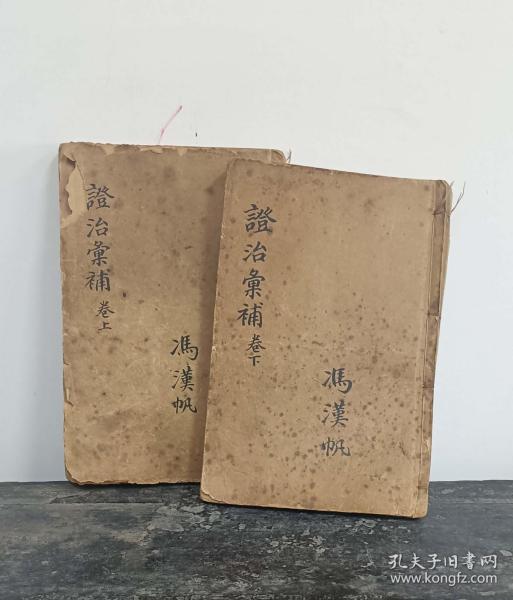 證治彙補 卷上
馮漢帆
證治彙補 卷下
馮漢帆
孔夫子旧书网
www.kongfz.com